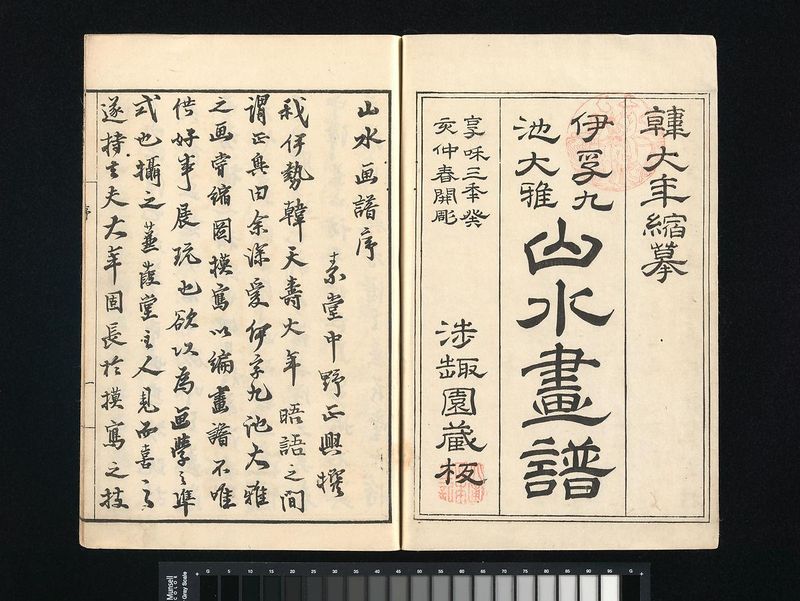 韓大年縮摹
伊孚九
池大雅
山水畫譜
享咊三年癸
亥仲春開彫
涉趣園蔵板
山水画譜序
素堂中野正興撰
我伊勢韓天壽大年晤語之間
謂正興曰余深愛伊孚九池大雅
之画嘗縮図摸寫以編畫譜不唯
供好事展玩也欲以為画學之準
式也攝之蒹葭堂主人見而喜之
遂持去夫大年固長於摸寫之技
序
一